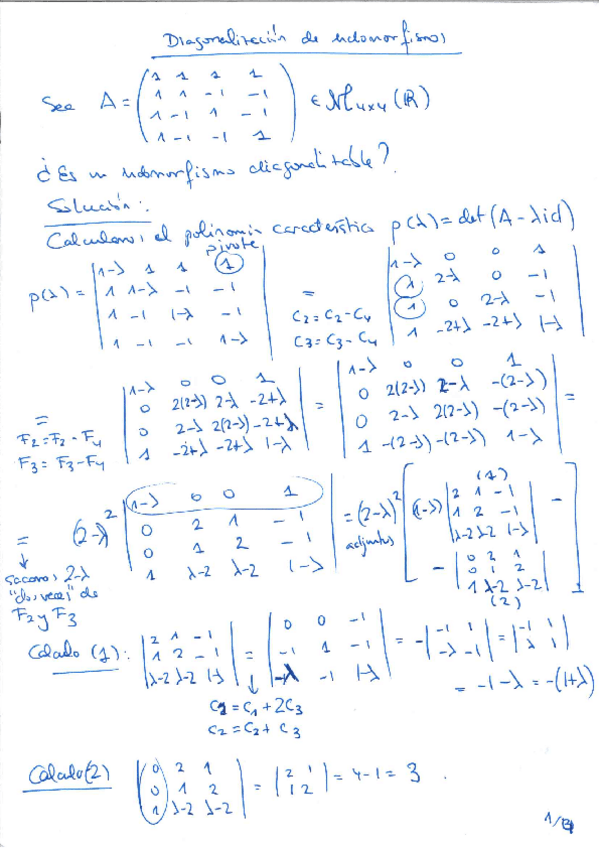 Diagonalización de endomorfismos
Sea A = ( 1 1 1 1 ; 1 1 -1 -1 ; 1 -1 1 -1 ; 1 -1 -1 1 ) ∈ M4x4 (ℝ)
¿Es un endomorfismo diagonalizable?
Solución:
Calculamos el polinomio característico p(λ) = det(A - λid)
pivote
p(λ) = | 1-λ 1 1 1 ; 1 1-λ -1 -1 ; 1 -1 1-λ -1 ; 1 -1 -1 1-λ | = | 1-λ 0 0 1 ; 1 2-λ 0 -1 ; 1 0 2-λ -1 ; 1 -2+λ -2+λ 1-λ |
C2 = C2 - C4
C3 = C3 - C4
= | 1-λ 0 0 1 ; 0 2(2-λ) 2-λ -2+λ ; 0 2-λ 2(2-λ) -2+λ ; 1 -2+λ -2+λ 1-λ | = | 1-λ 0 0 1 ; 0 2(2-λ) 2-λ -(2-λ) ; 0 2-λ 2(2-λ) -(2-λ) ; 1 -(2-λ) -(2-λ) 1-λ | =
F2 = F2 - F4
F3 = F3 - F4
= (2-λ)² | 1-λ 0 0 1 ; 0 2 1 -1 ; 0 1 2 -1 ; 1 λ-2 λ-2 1-λ | = (2-λ)² [ (1-λ) | 2 1 -1 ; 1 2 -1 ; λ-2 λ-2 1-λ | -
(1)
adjuntos
- | 0 2 1 ; 0 1 2 ; 1 λ-2 λ-2 | ]
(2)
sacamos 2-λ
"dos veces" de
F2 y F3
Cálculo (1): | 2 1 -1 ; 1 2 -1 ; λ-2 λ-2 1-λ | = | 0 0 -1 ; -1 1 -1 ; -λ -1 1-λ | = - | -1 1 ; -λ -1 | = | -1 1 ; λ 1 |
= -1-λ = -(1+λ)
C1 = C1 + 2C3
C2 = C2 + C3
Cálculo (2) | 0 2 1 ; 0 1 2 ; 1 λ-2 λ-2 | = | 2 1 ; 1 2 | = 4-1 = 3.